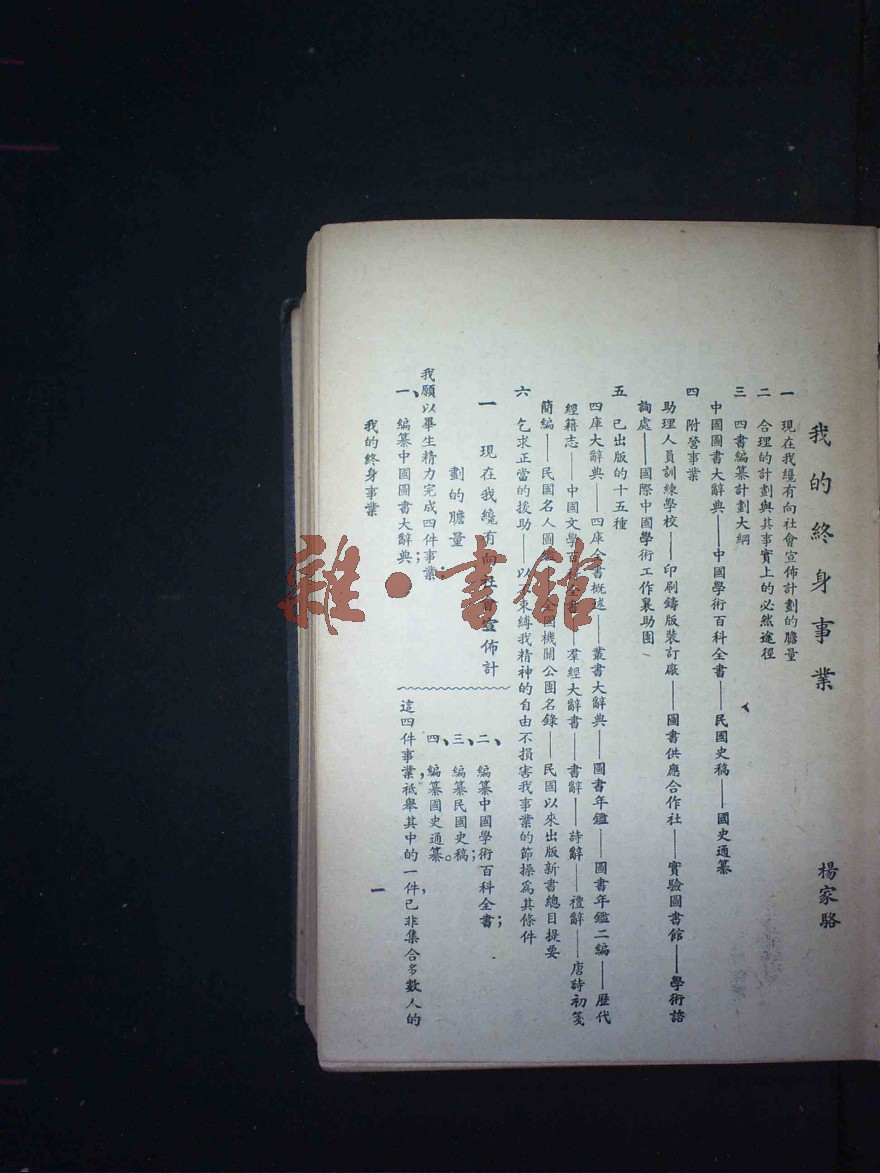 我的終身事業
楊家駱
一 現在我纔有向社會宣佈計劃的膽量
二 合理的計劃與其事實上的必然途徑
三 四書編纂計劃大綱
中國圖書大辭典——中國學術百科全書——民國史稿——國史通纂
四 附營事業
助理人員訓練學校——印刷鑄版裝訂廠——圖書供應合作社——實驗圖書館——學術諮
詢處——國際中國學術工作襄助團
五 已出版的十五種
四庫大辭典——四庫全書概述——叢書大辭典——圖書年鑑——圖書年鑑二編——歷代
經籍志——中國文學百科全書——羣經大辭書——書辭——詩辭——禮辭——唐詩初箋
簡編——民國名人圖鑑——全國機關公團名錄——民國以來出版新書總目提要
六 乞求正當的援助——以不束縛我精神的自由不損害我事業的節操為其條件
一 現在我纔有向社會宣佈計
劃的膽量
我願以畢生精力完成四件事業；
一、編纂中國圖書大辭典；
二、編纂中國學術百科全書；
三、編纂民國史稿；
四、編纂國史通纂。
這四件事業，祇舉其中的一件，已非集合多數人的
我的終身事業
一
雜·書館